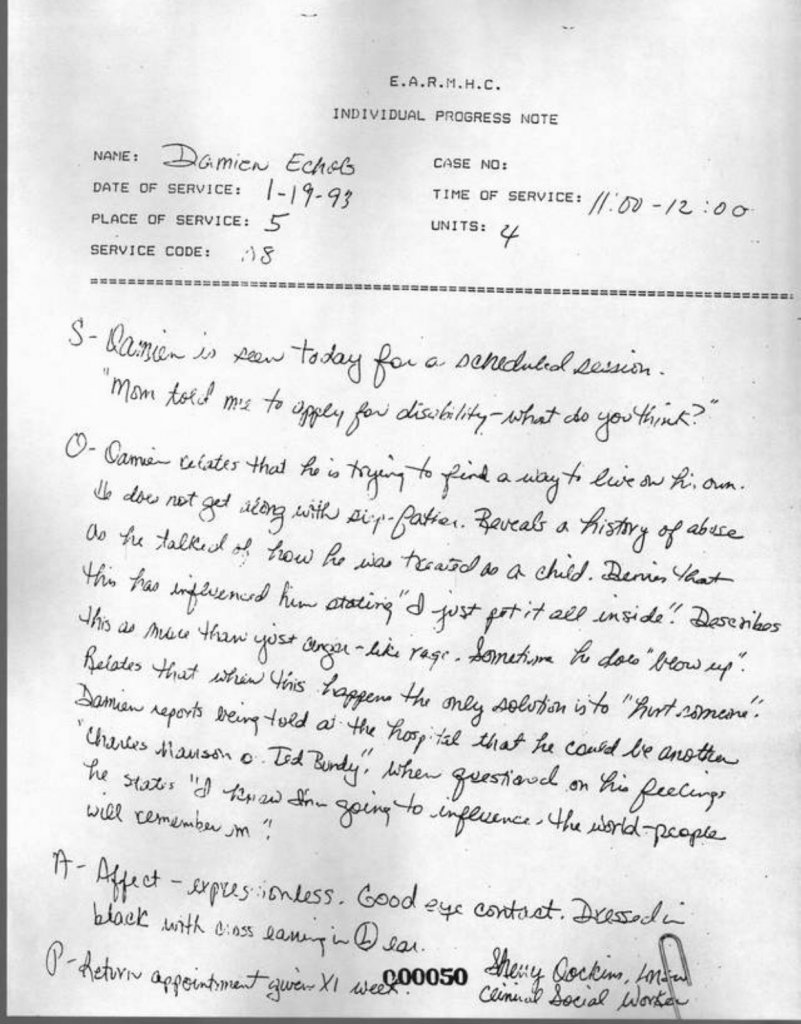 E.A.R.M.H.C.
INDIVIDUAL PROGRESS NOTE
NAME: Damien Echols
CASE NO:
DATE OF SERVICE: 1-19-93
TIME OF SERVICE: 11:00 - 12:00
PLACE OF SERVICE: 5
UNITS: 4
SERVICE CODE: 8
S- Damien is seen today for a scheduled session.
"Mom told me to apply for disability - what do you think?"
O- Damien relates that he is trying to find a way to live on his own.
He does not get along with step-father. Reveals a history of abuse
as he talked of how he was treated as a child. Denies that
this has influenced him stating "I just put it all inside". Describes
this as more than just anger - like rage. Sometime he does "blow up".
Relates that when this happens the only solution is to "hurt someone".
Damien reports being told at the hospital that he could be another
"Charles Manson or Ted Bundy". When questioned on his feelings
he states "I know I'm going to influence the world - people
will remember me".
A- Affect - expressionless. Good eye contact. Dressed in
black with cross earring in ① ear.
P- Return appointment given X1 week.
000050
Sherry Dockins,
Clinical Social Worker